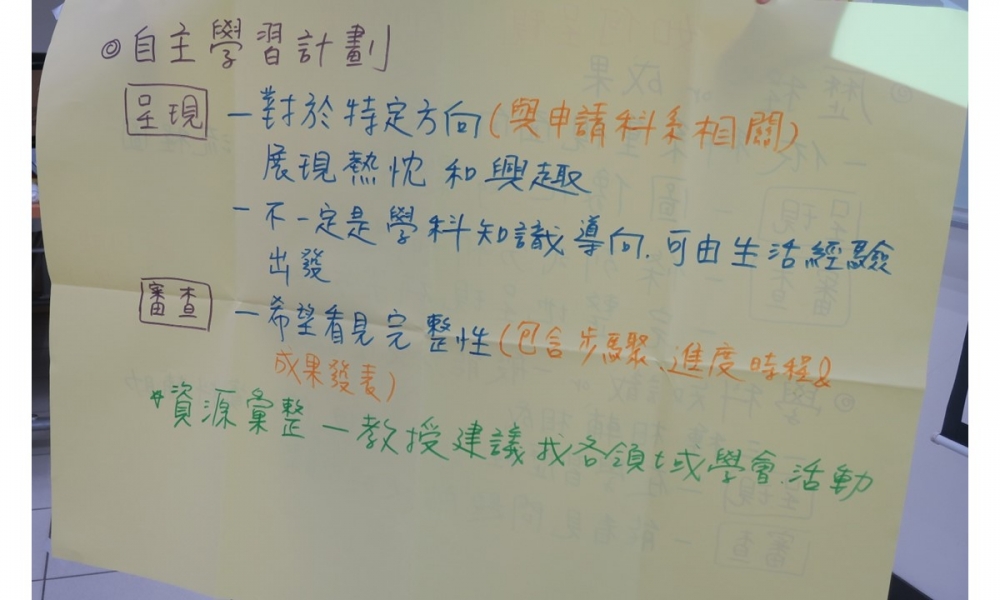 ◎自主學習計劃
呈現 —對於特定方向(與申請科系相關)
展現熱忱和興趣
—不一定是學科知識導向.可由生活經驗
出發
審查 —希望看見完整性(包含步驟、進度時程&
成果發表)
*資源彙整—教授建議找各領域學會.活動